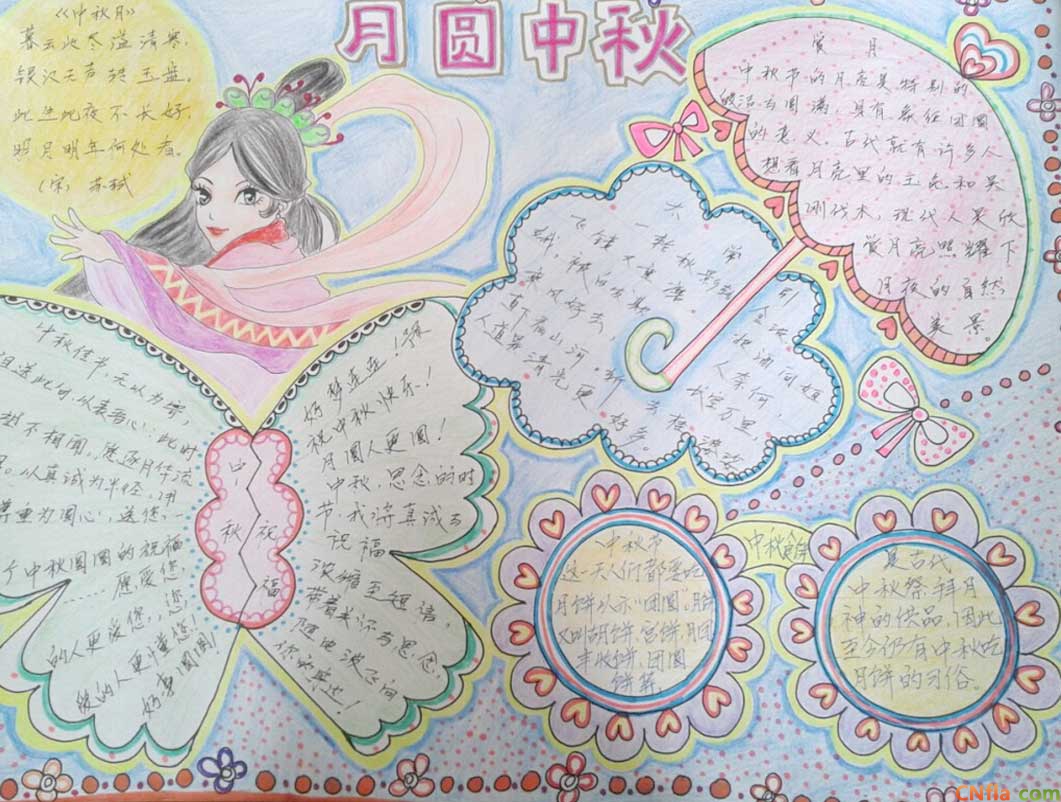 《中秋月》
暮云收尽溢清寒,
银汉无声转玉盘。
此生此夜不长好,
明月明年何处看。
(宋) 苏轼
月圆中秋
赏 月
中秋节的月亮是特别的
皎洁与圆满,具有象征团圆
的意义。古代就有许多人
想看月亮里的玉兔和吴
刚伐木,现代人是欣
赏月亮照耀下
月夜的自然
美景
中秋佳节,无以为寄,
且送此句,以表吾心:此时
相闻,愿逐月华流
以真诚为半径,用
尊重为圆心,送您
个中秋圆圆的祝福
愿爱您
的人更爱您,您
懂的人更懂您!
好事圆圆!
中秋
祝福
好梦连连!预
祝中秋快乐!
月圆人更圆!
中秋,思念的时
节,我将真诚的
祝福
浓缩至短信,
带着关怀与思念,
随电波飞向
你的身边!
一轮秋影转金波,
飞镜又重磨。
把酒问姮
娥:被白发欺人奈何,
乘风好去,长空万里,
直下看山河。斫去桂婆娑,
人道是清光更好多。
中秋节
这一天人们都要吃
月饼以示“团圆”。月饼
又叫胡饼、宫饼、月团
丰收饼、团圆
饼等。
中秋食俗
是古代
中秋祭拜月
神的供品,因此
至今仍有中秋吃
月饼的习俗。
CNfla.com